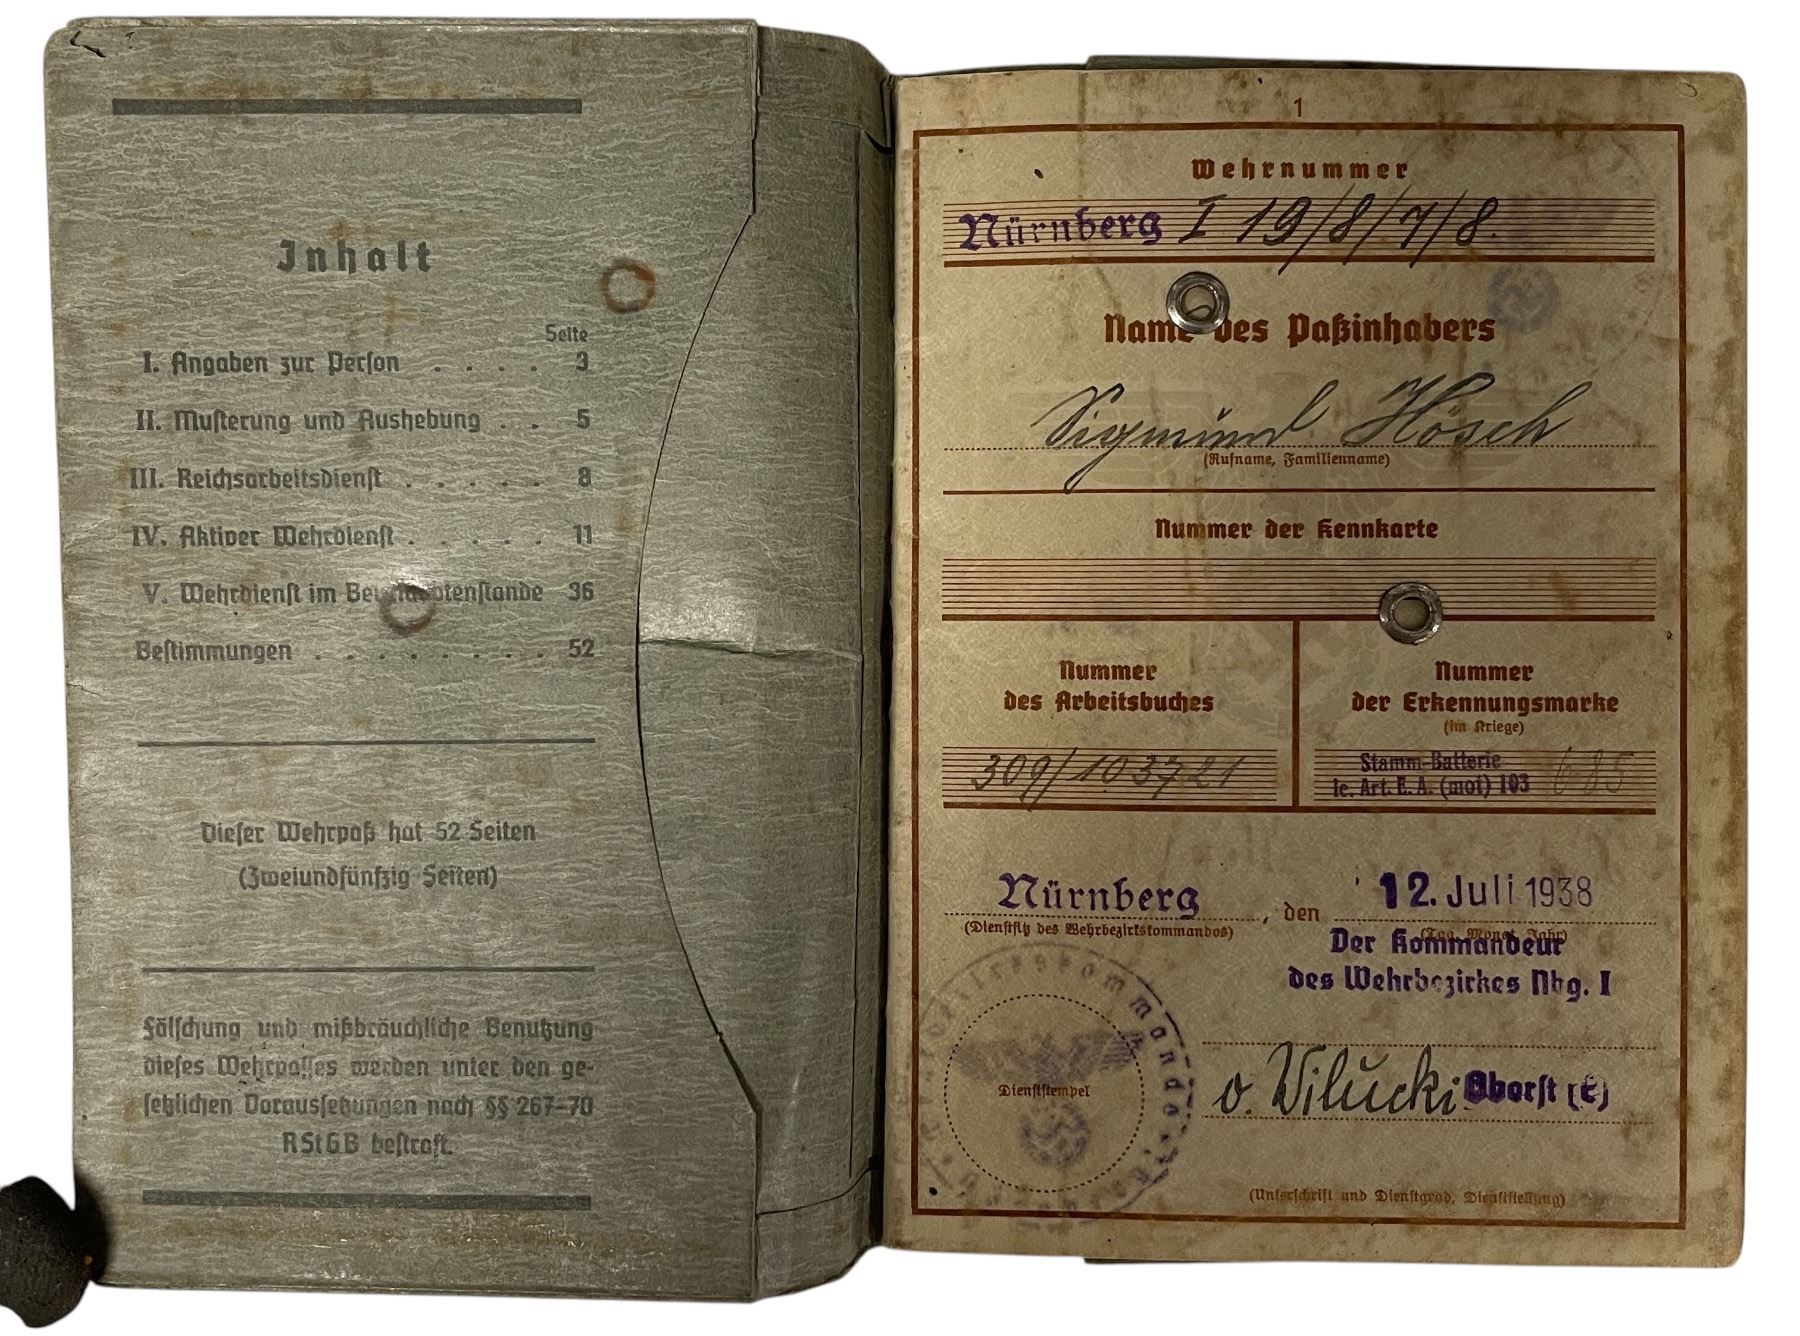 Inhalt
Seite
I. Angaben zur Person . . . . 3
II. Musterung und Aushebung . . 5
III. Reichsarbeitsdienst . . . . . 8
IV. Aktiver Wehrdienst . . . . . 11
V. Wehrdienst im Beurlaubtenstande 36
Bestimmungen . . . . . . . . 52
Dieser Wehrpaß hat 52 Seiten
(Zweiundfünfzig Seiten)
Fälschung und mißbräuchliche Benutzung
dieses Wehrpasses werden unter den ge-
setzlichen Voraussetzungen nach §§ 267–70
RStGB bestraft.
1
Wehrnummer
Nürnberg I 19/8/7/8.
Name des Paßinhabers
Sigmund Hösch
(Rufname, Familienname)
Nummer der Kennkarte
Nummer
des Arbeitsbuches
309/103721
Nummer
der Erkennungsmarke
(im Kriege)
Stamm-Batterie
le. Art. E. A. (mot) 103 685
Nürnberg, den 12. Juli 1938
(Dienstsitz des Wehrbezirkskommandos) (Tag, Monat, Jahr)
Der Kommandeur
des Wehrbezirkes Nbg. I
Dienststempel
v. Wilucki Oberst (E)
(Unterschrift und Dienstgrad, Dienststellung)